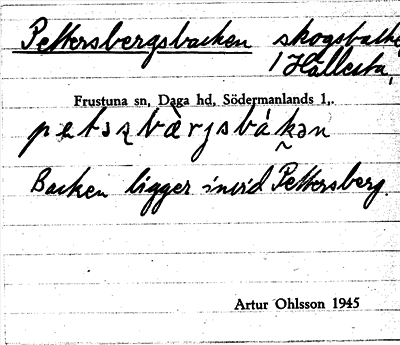 Pettersbergsbacken skogsbacke
i Hållesta,
Frustuna sn, Daga hd, Södermanlands l,.
Backen ligger invid Pettersberg.
Artur Ohlsson 1945